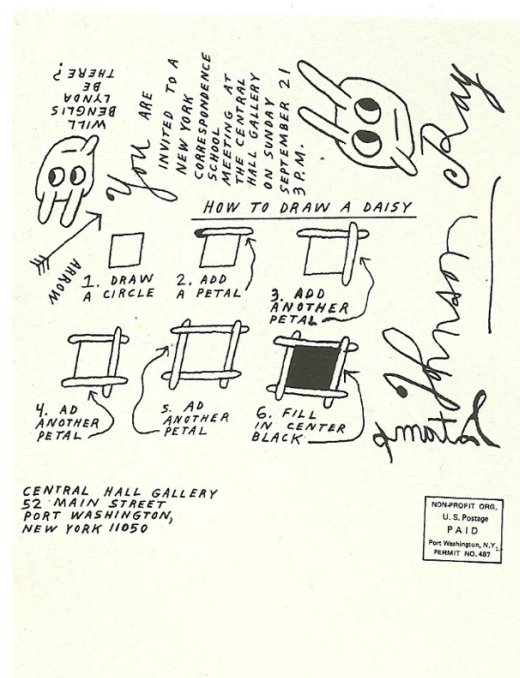 WILL
BENGLIS
LYNDA
BE
THERE?
YOU ARE
INVITED TO A
NEW YORK
CORRESPONDENCE
SCHOOL
MEETING AT
THE CENTRAL
HALL GALLERY
ON SUNDAY
SEPTEMBER 21
3 P.M.
Ray
Johnson
ARROW
HOW TO DRAW A DAISY
1. DRAW
A CIRCLE
2. ADD
A PETAL
3. ADD
ANOTHER
PETAL
4. AD
ANOTHER
PETAL
5. AD
ANOTHER
PETAL
6. FILL
IN CENTER
BLACK
CENTRAL HALL GALLERY
52 MAIN STREET
PORT WASHINGTON,
NEW YORK 11050
NON-PROFIT ORG.
U. S. Postage
PAID
Port Washington, N.Y.
PERMIT NO. 487